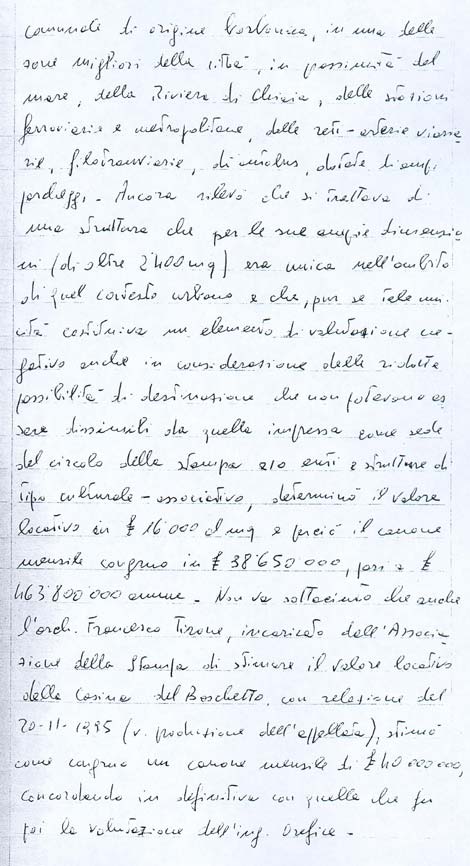 comunale di origine borbonica, in una delle
zone migliori della città, in prossimità del
mare, della Riviera di Chiaia, delle stazioni
ferroviarie e metropolitane, delle reti-arterie viarie
rie, filotranviarie, di autobus, dotate di ampi
parcheggi. Ancora rilevò che si trattava di
una struttura che per le sue ampie dimensio
ni (di oltre 2'400 mq) era unica nell'ambito
di quel contesto urbano e che, pur se tale uni
cità costituiva un elemento di valutazione ne-
gativo anche in considerazione delle ridotte
possibilità di destinazione che non potevano es
sere dissimili da quella impressa come sede
del circolo della stampa e/o enti e strutture di
tipo culturale-associativo, determinò il valore
locativo in £ 16000 al mq e perciò il canone
mensile congruo in £ 38'650'000, pari a £
463'800'000 annue. Non va sottaciuto che anche
l'arch. Francesco Tirone, incaricato dall'Associa-
zione della Stampa di stimare il valore locativo
della Casina del Boschetto, con relazione del
20-11-1995 (v. produzione dell'appellata), stimò
come congruo un canone mensile di £ 40'000'000,
concordando in definitiva con quella che fu
poi la valutazione dell'ing. Orefice.